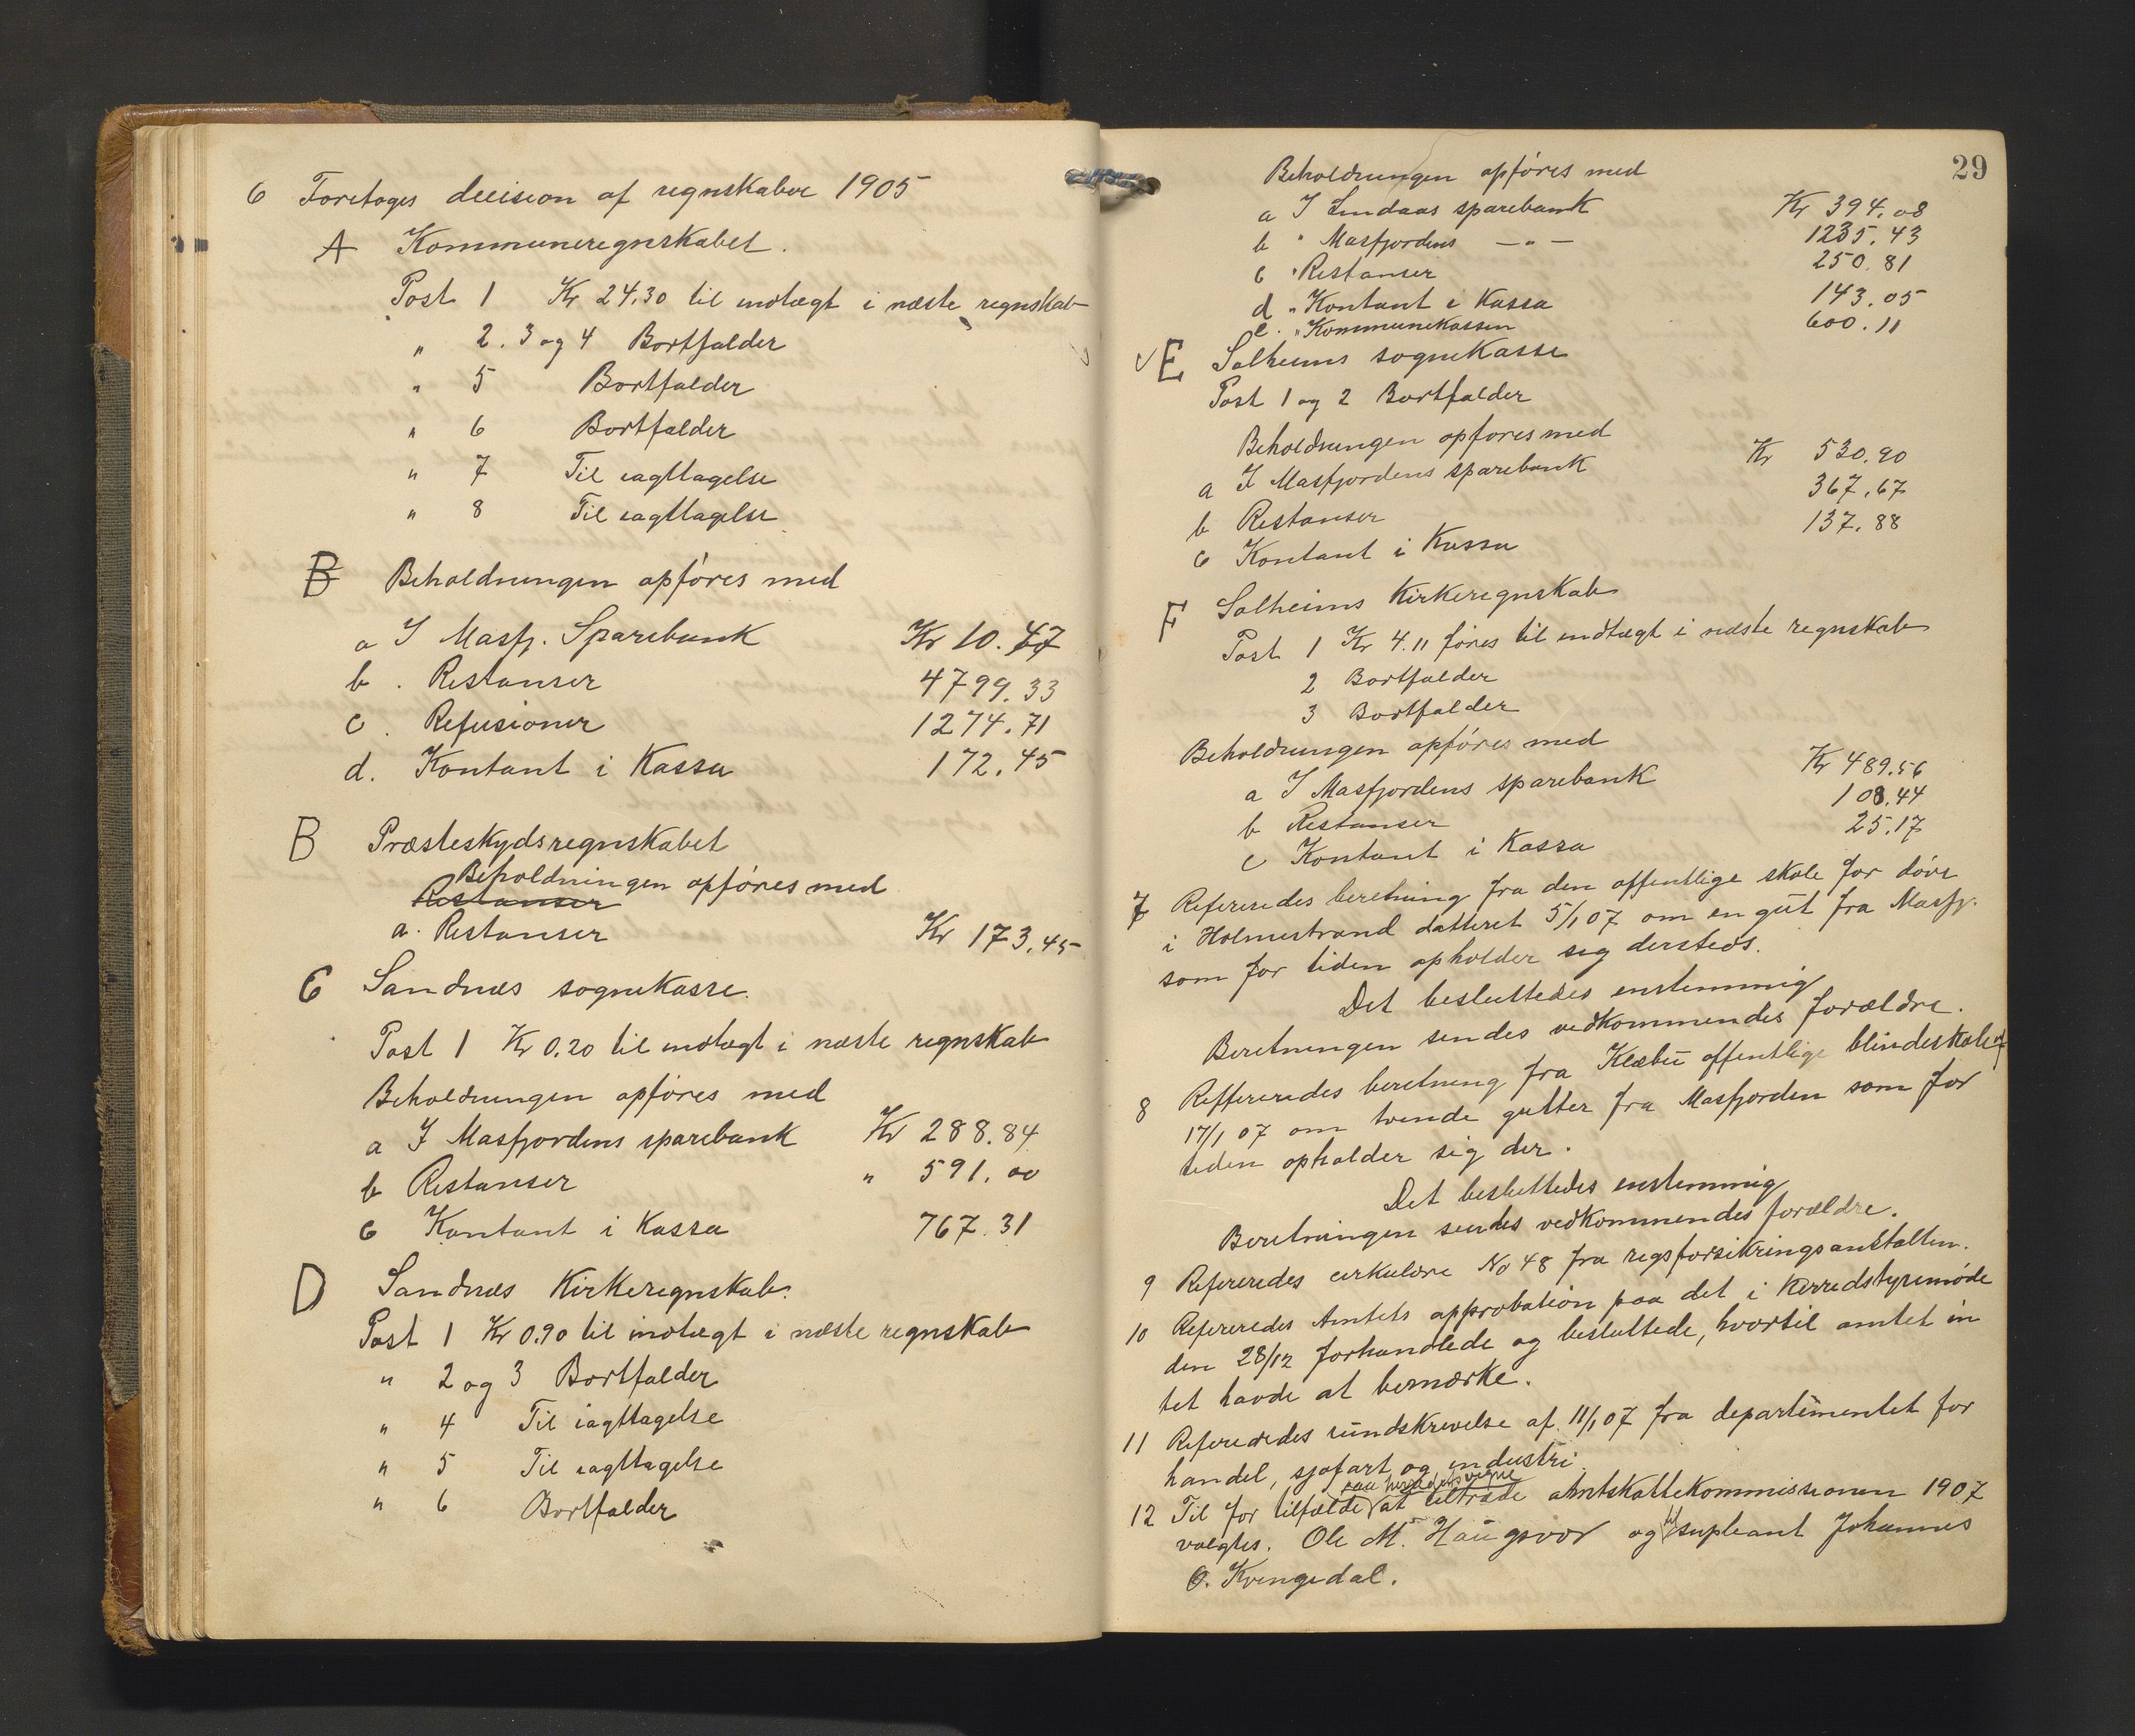 6 Foretoges decision af regnskaber 1905
A Kommuneregnskabet.
Post 1 Kr 24.30 til indtægt i næste regnskab
" 2. 3 og 4 Bortfalder
" 5 Bortfalder
" 6 Bortfalder
" 7 Til iagttagelse
" 8 Til iagttagelse
B Beholdningen opføres med
a I Masfj. Sparebank Kr 10.47
b . Restanser 4799.33
c . Refusioner 1274.71
d. Kontant i Kassa 172.45
B Præsteskydsregnskabet
Beholdningen opføres med
Restanser
a. Restanser Kr 173.45
C Sandnæs sognekasse.
Post 1 Kr 0.20 til indtægt i næste regnskab
Beholdningen opføres med
a I Masfjordens sparebank Kr 288.84
b Restanser " 591.00
c Kontant i Kassa 767.31
D Sandnæs Kirkeregnskab.
Post 1 Kr 0.90 til indtægt i næste regnskab
" 2 og 3 Bortfalder
" 4 Til iagttagelse
" 5 Til iagttagelse
" 6 Bortfalder
29
Beholdningen opføres med
a I Lindaas sparebank Kr 394.08
b " Masfjordens — " — 1235.43
c " Restanser 250.81
d " Kontant i Kassa 143.05
e. " Kommunekassen 600.11
E Solheims sognekasse
Post 1 og 2 Bortfalder
Beholdningen opføres med
a I Masfjordens sparebank Kr 530.90
b Restanser 367.67
c Kontant i Kassa 137.88
F Solheims Kirkeregnskab
Post 1 Kr 4.11 føres til indtægt i næste regnskab
2 Bortfalder
3 Bortfalder
Beholdningen opføres med
a I Masfjordens sparebank Kr 489.56
b Restanser 108.44
c Kontant i Kassa 25.17
7 Refereredes beretning fra den offentlige skole for døve
i Holmestrand datteret 5/1 07 om en gut fra Masfj.
som for tiden opholder sig dersteds.
Det besluttedes enstemmig
Beretningen sendes vedkommendes forældre.
8 Reffereredes beretning fra Klæbu offentlige blindeskole af
17/1 07 om tvende gutter fra Masfjorden som for
tiden opholder sig der.
Det besluttedes enstemmig
Beretningen sendes vedkommendes forældre.
9 Refereredes cirkulære No 48 fra regsforsikringsanstalten.
10 Refereredes Amtets approbation paa det i Herredstyremøde
den 28/12 forhandlede og besluttede, hvortil amtet in
tet havde at bemærke.
11 Refereredes rundskrivelse af 11/1 07 fra departementet for
handel, sjøfart og industri.
paa herredets vegne
12 Til for tilfælde at tiltræde amtskattekommissionen 1907
valgtes. Ole M. Haugsvær og til supleant Johannes
O. Kvingedal.